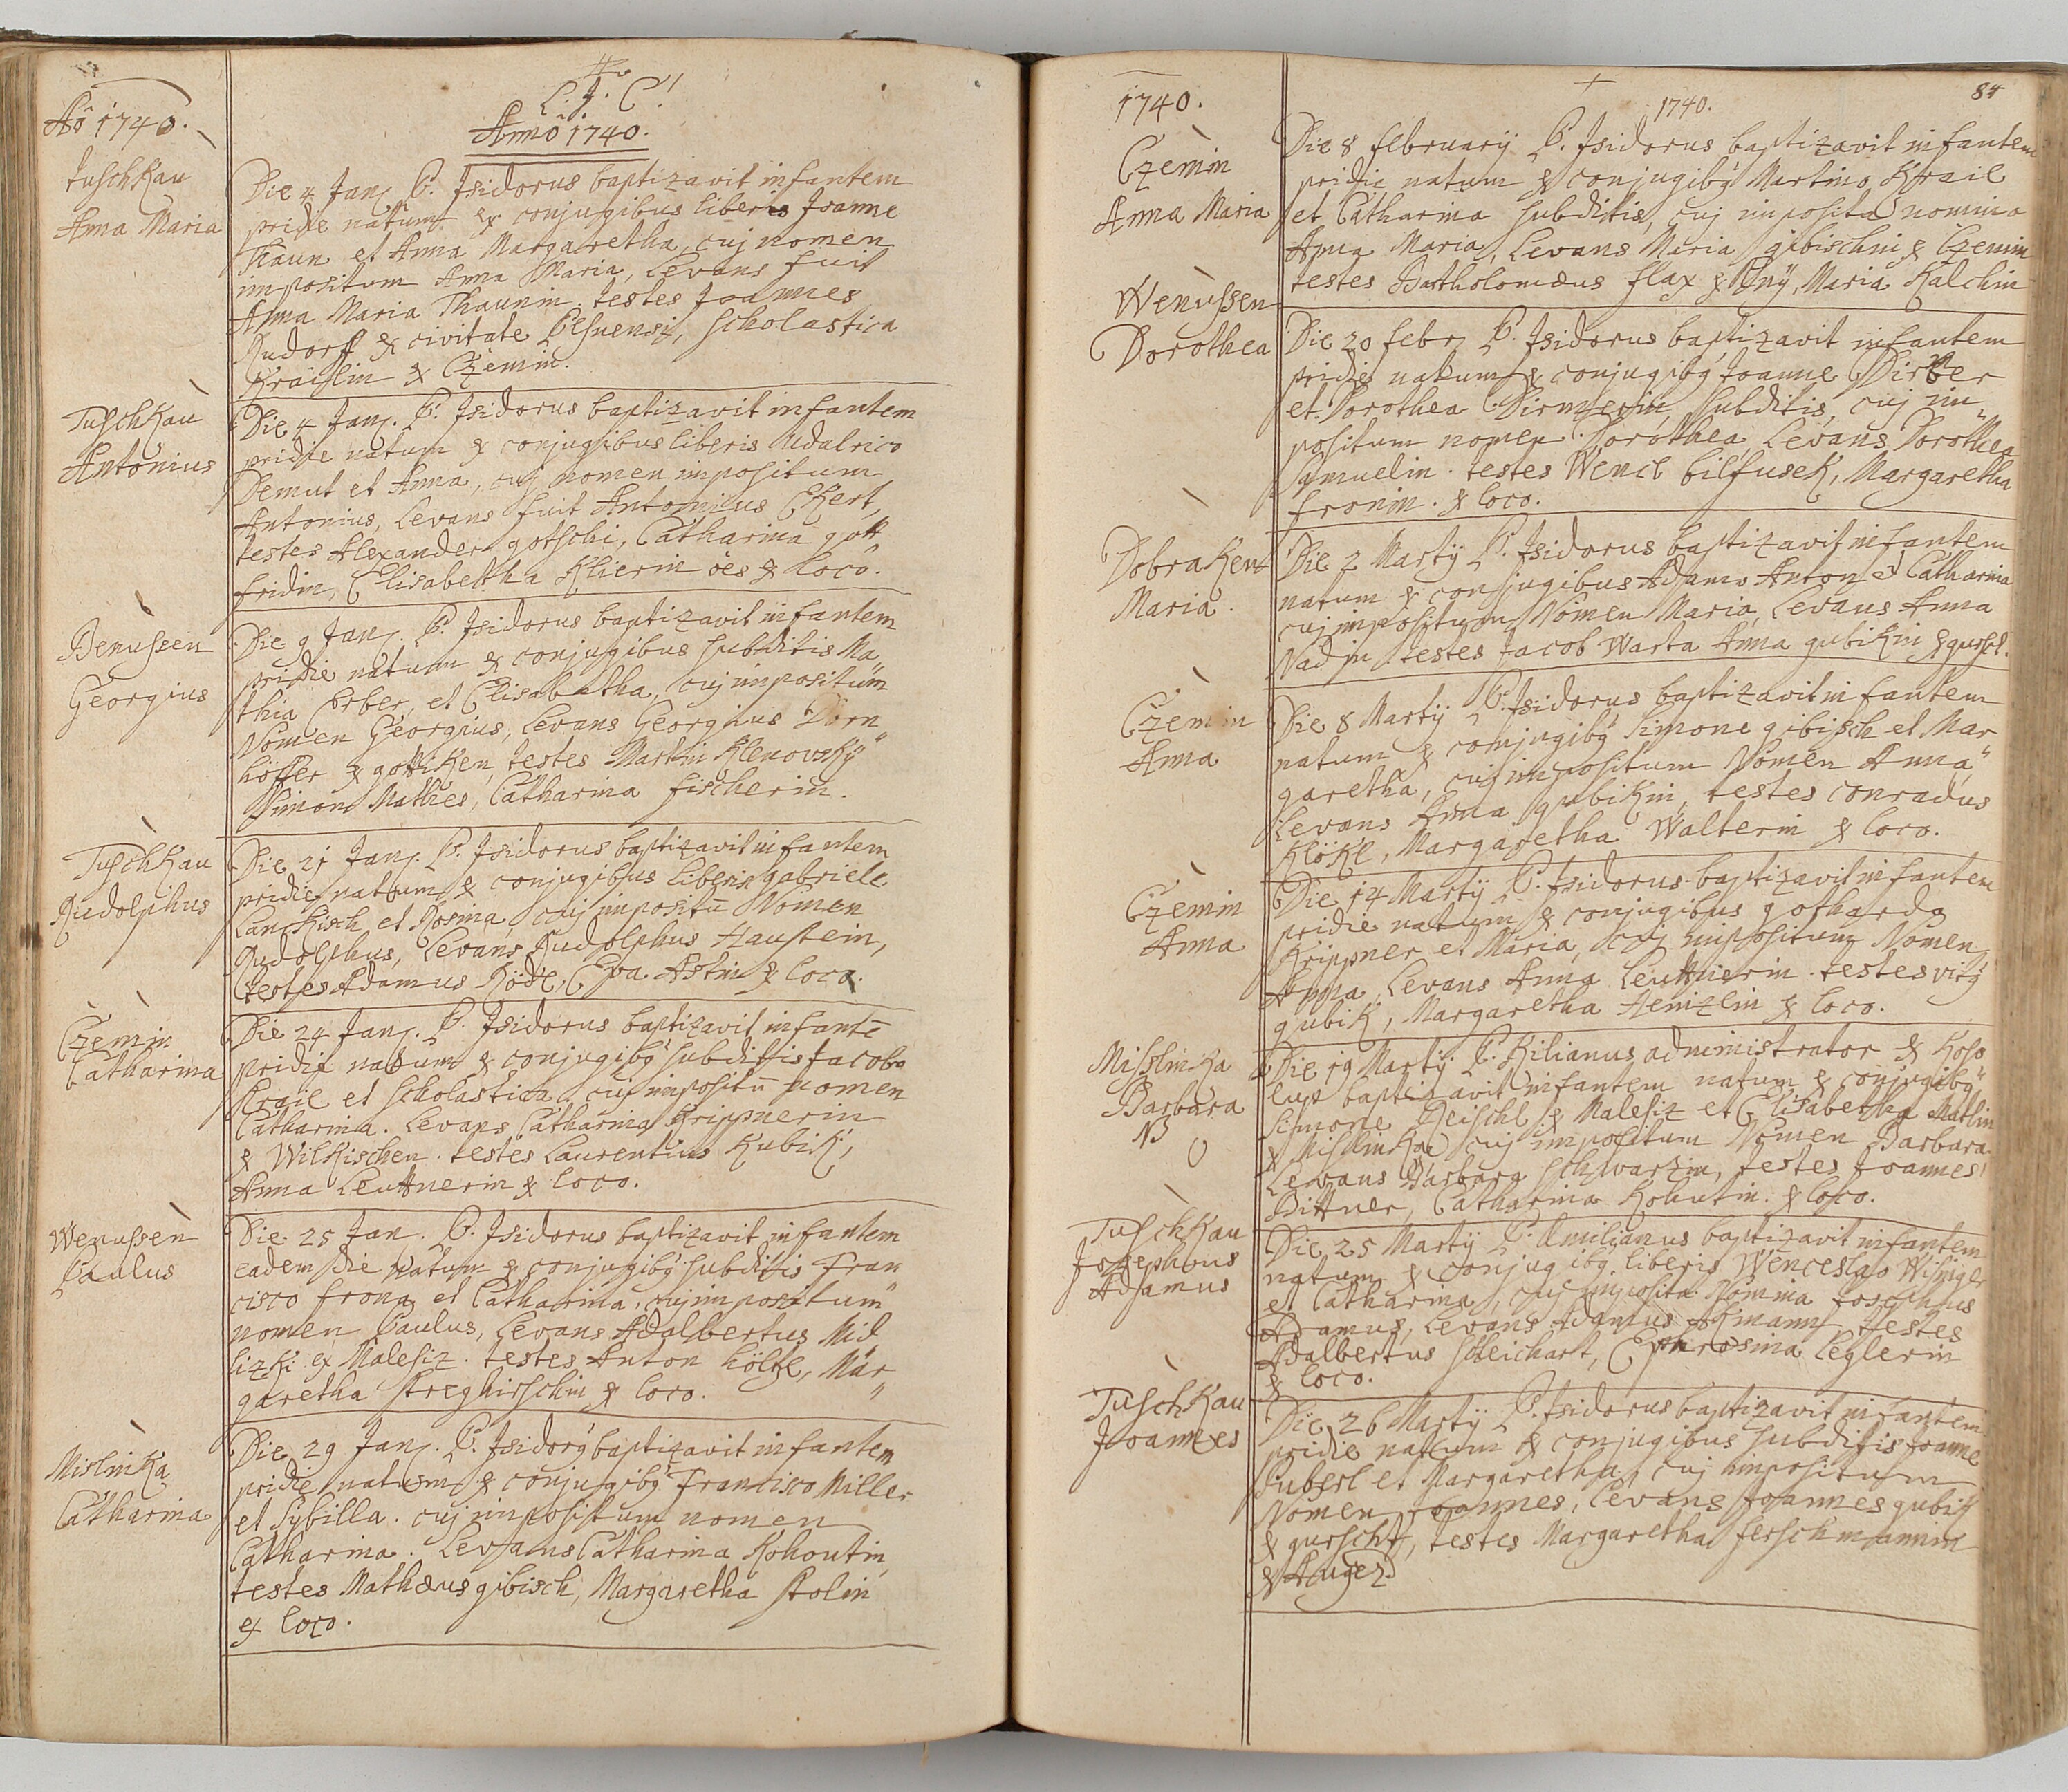 Aō 1740.
L. J. C!
Anno 1740.
Tuschkau
Anna Maria
Die 4 Janj. P. Isidorus baptizavit infantem
pridie natum ex conjugibus liberis Joanne
Thaun et Anna Margaretha, cuj nomen
impositum Anna Maria, Levans fuit
Anna Maria Thaunin. testes Joannes
Rudorff ex civitate Pilsnensi, Scholastica
Krailin ex Czemin.
Tuschkau
Antonius
Die 4 Janj. P. Isidorus baptizavit infantem
pridie natum ex conjugibus liberis Udalrico
Demut et Anna, cuj nomen impositum
Antonius, Levans fuit Antonius Ekert,
testes Alexander gotschi, Catharina gott
fridin, Elisabetha Klierin oēs ex loco.
Benussen
Georgius
Die 9 Janj. P. Isidorus baptizavit infantem
pridie natum ex conjugibus subditis Ma
thia Erber, et Elisabetha, cuj impositum
Nomen Georgius, Levans Georgius Dorn
höffer ex gottiken, testes Martin Klenovsky
Simon Mathes, Catharina fischerin.
Tuschkau
Rudolphus
Die 21 Janj. P. Isidorus baptizavit infantem
pridie natum ex conjugibus liberis Gabriele
Lanckisch et Rosina, cuj impositū Nomen
Rudolphus, Levans Rudolphus Haustein,
testes Adamus Ködl, Eva Astin ex loco.
Czemin
Catharina
Die 24 Janj. P. Isidorus baptizavit infantē
pridie natum ex conjugibg subditis Jacobo
Krail et Scholastica, cuj impositū nomen
Catharina. Levans Catharina Krippnerin
ex Wilkischen. testes Laurentius Kubik,
Anna Leuttnerin ex loco.
Wenussen
Paulus
Die 25 Jan. P. Isidorus baptizavit infantem
eadem die natum ex conjugibg subditis Fran
cisco frona et Catharina, cuj impositum
nomen Paulus, Levans Adalbertus Mid
lizki ex Malesiz. testes Anton höltzl, Mar
garetha Streghirschin ex loco.
Mislinka
Catharina
Die 29 Janj. P. Isidorg baptizavit infantem
pridie natum ex conjugibg Francisco Miller
et Sybilla. cuj impositum nomen
Catharina. Levans Catharina Kohoutin,
testes Mathæus gibisch, Margaretha Stolin
ex loco.
84
1740.
1740.
Czemin
Anna Maria
Die 8 february P. Isidorus baptizavit infantem
pridie natum ex conjugibg Martino Krail
et Catharina subditis, cuj imposita nomina
Anna Maria, Levans Maria gibischin ex Czemin
testes Bartholomæus flax ex Pny, Maria Kalchin
Wenussen
Dorothea
Die 20 febrj P. Isidorus baptizavit infantem
pridie natum ex conjugibg Joanne Dirber
et Dorothea Dirmerin subditis, cuj im
positum nomen Dorothea, Levans Dorothea
Samuelin. testes Wencl bilfusek, Margaretha
fronin. ex loco.
Dobraken
Maria.
Die 2 Martij P. Isidorus baptizavit infantem
natum ex conjugibus Adamo Anton et Catharina
cuj impositum Nomen Maria, Levans Anna
Nadin. testes Jacob Warta Anna gubikin ex gurscht.
Czemin
Anna
Die 8 Martij P. Isidorus baptizavit infantem
natum ex conjugibg Simone gibisch et Mar
garetha, cuj impositum Nomen Anna
Levans Anna gubikin, testes Conradus
Klökl, Margaretha Walterin ex loco.
Czemin
Anna
Die 14 Martij P. Isidorus baptizavit infantem
pridie natum ex conjugibus gothardo
Krippner et Maria, cuj impositum Nomen
Anna, Levans Anna Leuttnerin. testes vitg
gubik, Margaretha Heinzlin ex loco.
Misslinka
Barbara
NB
Die 19 Martij P. Kilianus administrator ex Koso
lup baptizavit infantem natum ex conjugibg
Simone Reischl ex Malesiz et Elisabetha Matlin
ex Mislinka cuj impositum Nomen Barbara
Levans Barbara schwarzin, testes Joannes
Bittner, Catharina Kohutin. ex loco.
Tuschkau
Josephus
Adamus
Die 25 Martij P. Æmilianus baptizavit infantem
natum ex conjugibg liberis Wenceslao
et Catharina, cuj imposita Nomina Josephus
Adamus, Levans Adamus Akmann, testes
Adalbertus scheichart, Euphrosina Leglerin
ex loco.
Tuschkau
Joannes
Die 26 Martij P. Isidorus baptizavit infantem
pridie natum ex conjugibus subditis Joanne
Duberl et Margaretha, cuj impositum
Nomen Joannes, Levans Joannes gubik
ex gurscht, testes Margaretha ferschmannin
ex Augez.